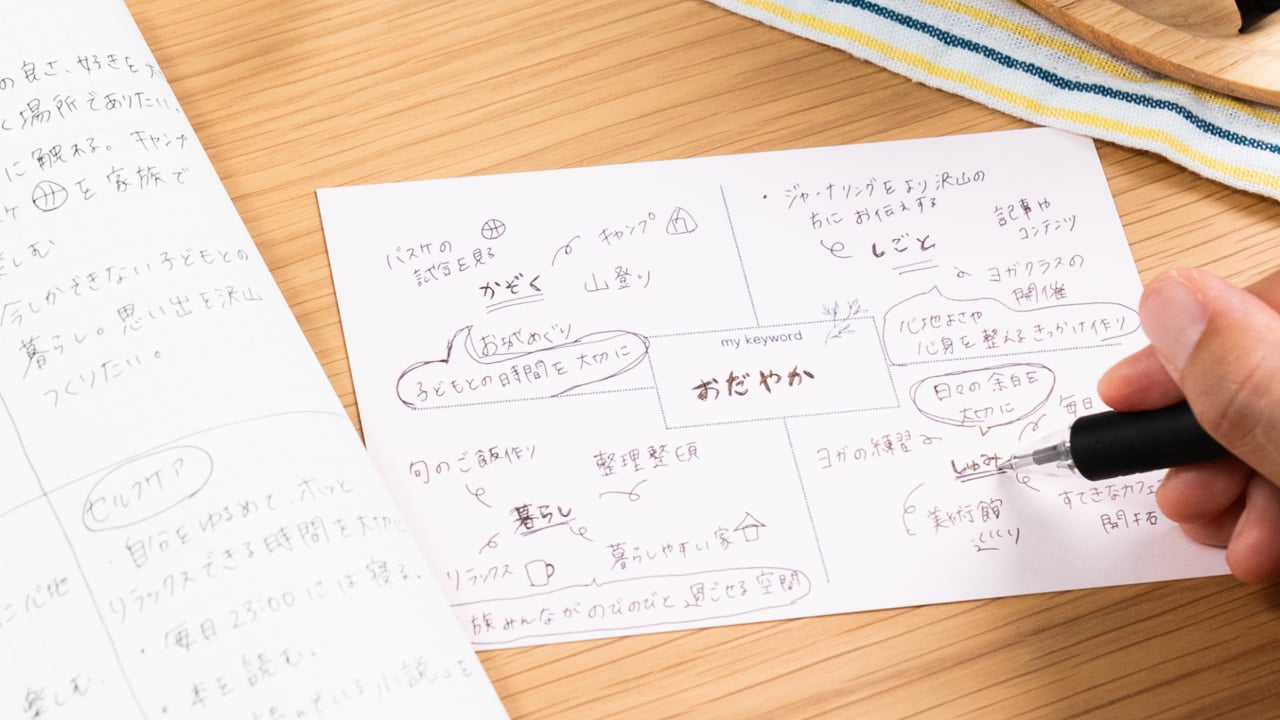 の良さ、好きを大
く場所でありたい。
に触れる。キャンプ
スケ を家族で
楽しむ
今しかできない子どもとの
暮らし。思い出を沢山
つくりたい。
セルフケア
・自分をゆるめて、ホッと
リラックスできる時間を大切に
・毎日23:00には寝る。
・本を読む。
小説」を
に心地
楽しむ。
バスケの
試合を見る
キャンプ
かぞく
山登り
おはかめぐり
子どもとの時間を大切に
・ジャーナリングをより沢山の
方にお伝えする
しごと
記事や
コンテンツ
ヨガクラスの
開催
心地よさや
心身を整えるきっかけ作り
my keyword
おだやか
旬のご飯作り
整理整頓
暮らし
リラックス
暮らしやすい家
族みんながのびのびと過ごせる空間
日々の余白を
大切に
毎日
ヨガの練習
しゅみ
美術館
めぐり
すてきなカフェ
開拓